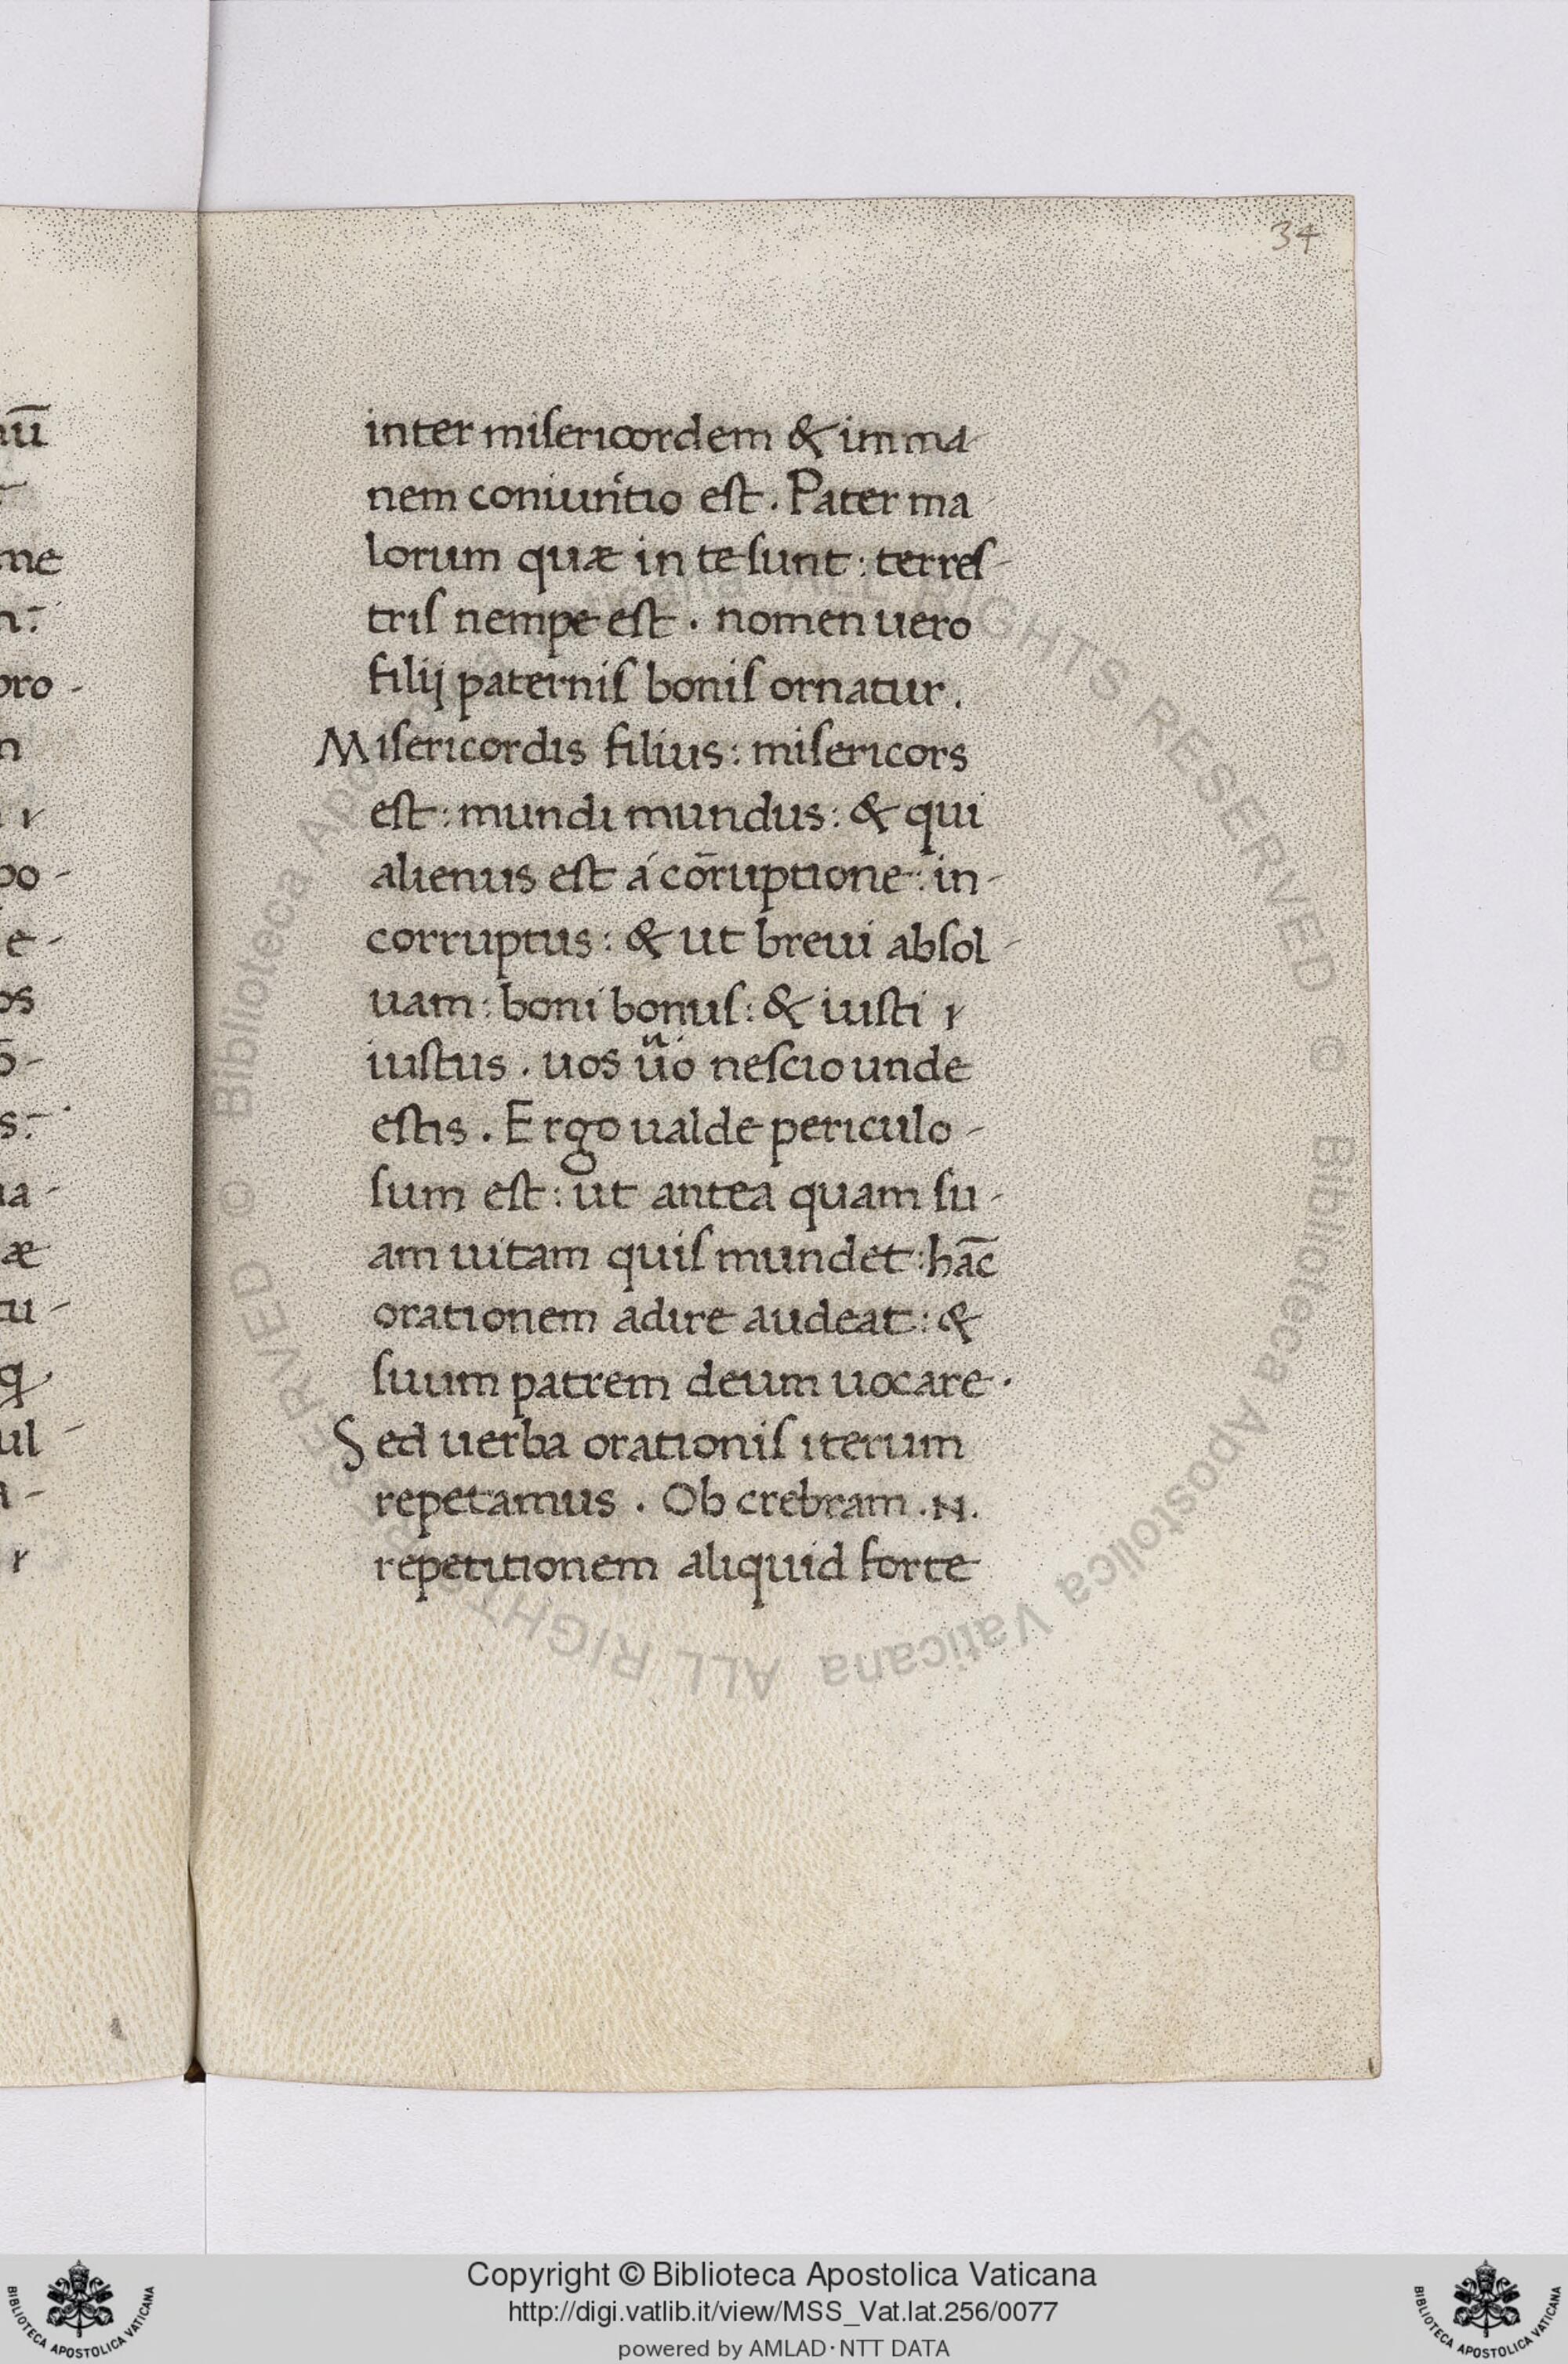 34
inter misericordem & imma-
nem coniunctio est. Pater ma-
lorum quæ in te sunt: terres-
tris nempe est. nomen uero
filij paternis bonis ornatur.
Misericordis filius: misericors
est: mundi mundus: & qui
alienus est á cōruptione: in-
corruptus: & ut breui absol-
uam: boni bonus: & iusti
iustus. uos ūo nescio unde
estis. Ergo ualde periculo-
sum est: ut antea quam su-
am uitam quis mundet: hāc
orationem adire audeat: &
suum patrem deum uocare.
Sed uerba orationis iterum
repetamus. Ob crebram .N.
repetitionem aliquid forte
Copyright © Biblioteca Apostolica Vaticana
http://digi.vatlib.it/view/MSS_Vat.lat.256/0077
powered by AMLAD·NTT DATA
BIBLIOTECA APOSTOLICA VATICANA
BIBLIOTECA APOSTOLICA VATICANA